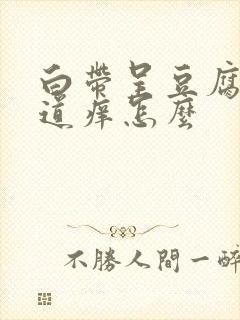 白帶呈豆腐
道痒怎麼
不勝人間一醉